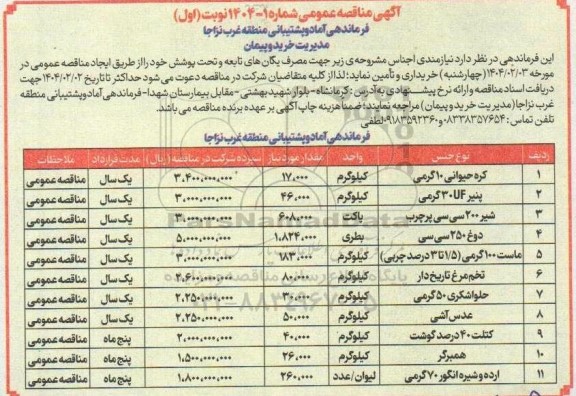 آگهی مناقصه عمومی شماره ۱-۱۴۰۴ نوبت (اول)
فرماندهی آماد و پشتیبانی منطقه غرب نزاجا
مدیریت خرید و پیمان
این فرماندهی در نظر دارد نیازمندی اجناس مشروحه‌ی زیر جهت مصرف یگان های تابعه و تحت پوشش خود را از طریق ایجاد مناقصه عمومی در
مورخه ۱۴۰۴/۰۲/۰۳ (چهارشنبه) خریداری و تأمین نماید؛ لذا از کلیه متقاضیان شرکت در مناقصه دعوت می شود حداکثر تا تاریخ ۱۴۰۴/۰۲/۰۲ جهت
دریافت اسناد مناقصه و ارائه نرخ پیشنهادی به آدرس: کرمانشاه-بلوار شهید بهشتی-مقابل بیمارستان شهدا-فرماندهی آماد و پشتیبانی منطقه
غرب نزاجا (مدیریت خرید و پیمان) مراجعه نمایند؛ ضمناً هزینه چاپ آگهی بر عهده برنده مناقصه می باشد.
تلفن تماس: ۰۸۳۳۸۳۵۷۶۵۴ و ۰۹۱۸۳۵۹۲۳۶۰ لطفی
فرماندهی آماد و پشتیبانی منطقه غرب نزاجا
ردیف نوع جنس واحد مقدار مورد نیاز سپرده شرکت در مناقصه (ریال) مدت قرارداد ملاحظات
۱ کره حیوانی ۱۰ گرمی کیلوگرم ۱۷,۰۰۰ ۳,۴۰۰,۰۰۰,۰۰۰ یک سال مناقصه عمومی
۲ پنیر UF ۳۰ گرمی کیلوگرم ۴۶,۰۰۰ ۳,۰۰۰,۰۰۰,۰۰۰ یک سال مناقصه عمومی
۳ شیر ۲۰۰ سی سی پرچرب پاکت ۶۰۸,۰۰۰ ۳,۰۰۰,۰۰۰,۰۰۰ یک سال مناقصه عمومی
۴ دوغ ۲۵۰ سی سی بطری ۱,۸۲۴,۰۰۰ ۵,۰۰۰,۰۰۰,۰۰۰ یک سال مناقصه عمومی
۵ ماست ۱۰۰ گرمی (۱/۵ تا ۳ درصد چربی) کیلوگرم ۱۸۳,۰۰۰ ۳,۰۰۰,۰۰۰,۰۰۰ یک سال مناقصه عمومی
۶ تخم مرغ تاریخ دار کیلوگرم ۸۰,۰۰۰ ۲,۶۰۰,۰۰۰,۰۰۰ یک سال مناقصه عمومی
۷ حلوا شکری ۵۰ گرمی کیلوگرم ۳۰,۰۰۰ ۲,۲۵۰,۰۰۰,۰۰۰ یک سال مناقصه عمومی
۸ عدس آشی کیلوگرم ۵۰,۰۰۰ ۲,۲۵۰,۰۰۰,۰۰۰ یک سال مناقصه عمومی
۹ کتلت ۴۰ درصد گوشت کیلوگرم ۴۰,۰۰۰ ۲,۰۰۰,۰۰۰,۰۰۰ پنج ماه مناقصه عمومی
۱۰ همبرگر کیلوگرم ۲۶,۰۰۰ ۱,۵۰۰,۰۰۰,۰۰۰ پنج ماه مناقصه عمومی
۱۱ ارده و شیره انگور ۷۰ گرمی لیوان/عدد ۲۶۰,۰۰۰ ۱,۸۰۰,۰۰۰,۰۰۰ پنج ماه مناقصه عمومی